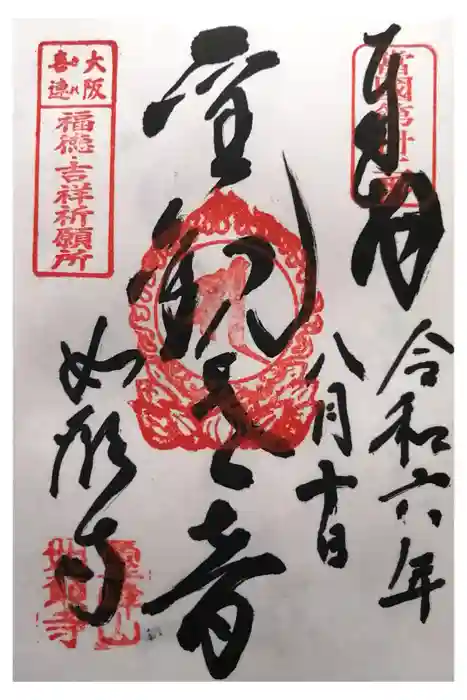 奉拝
令和六年
八月十日
聖観世音
如願寺
大阪
喜連
きれ
福徳・吉祥祈願所
如願寺